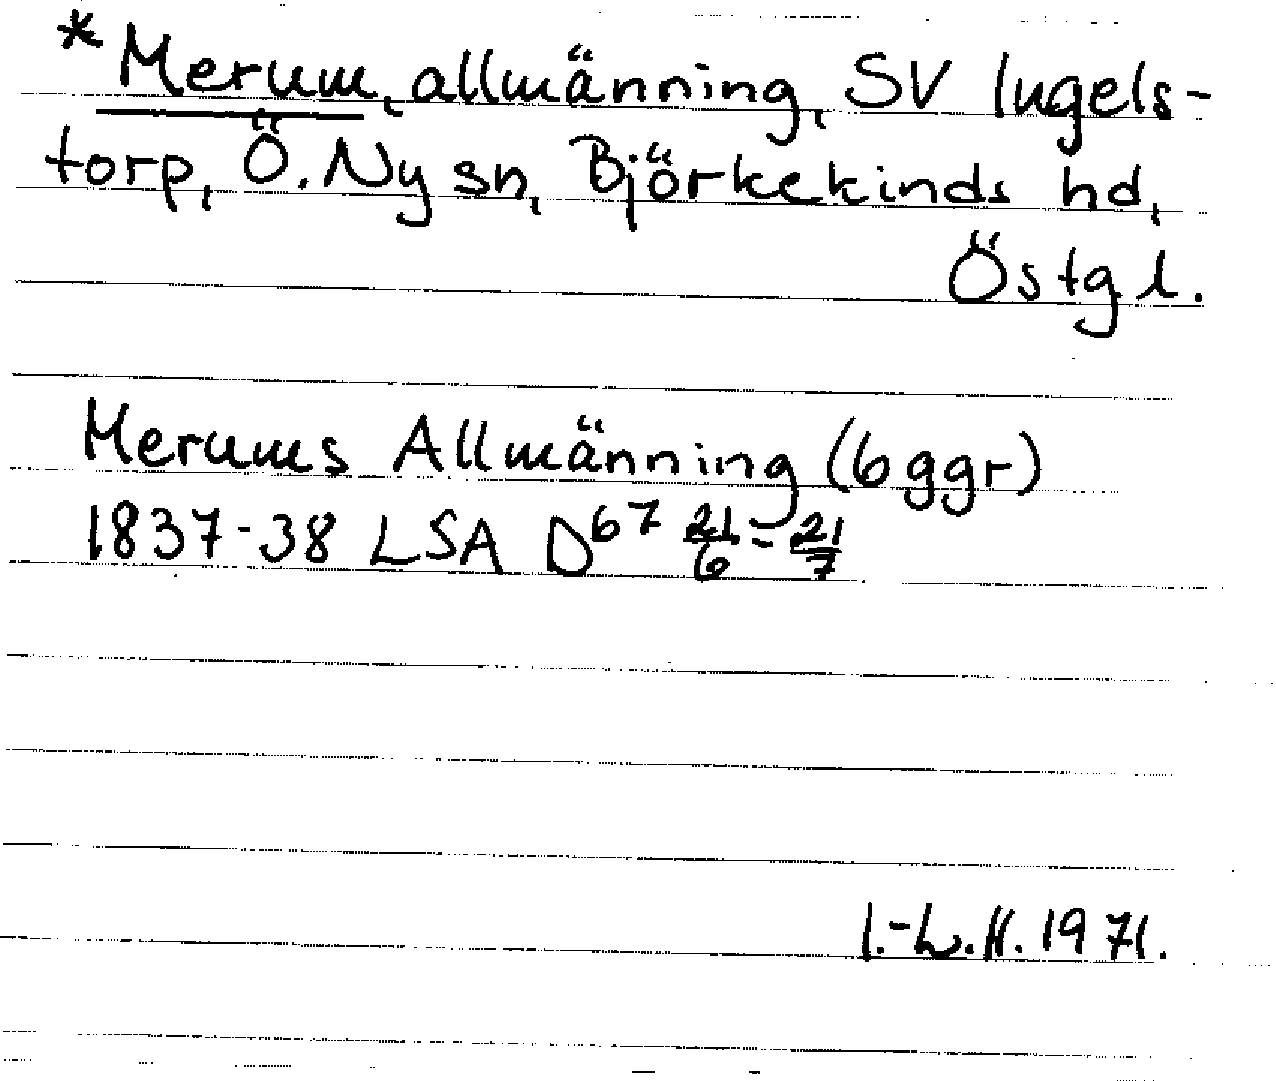 *Merum, allmänning, SV Ingels-
torp, Ö. Ny sn, Björkekinds hd,
Östgl.
Merums Allmänning (6 ggr)
1837-38 LSA D67 21/6 - 21/7
I.-L.H. 1971.